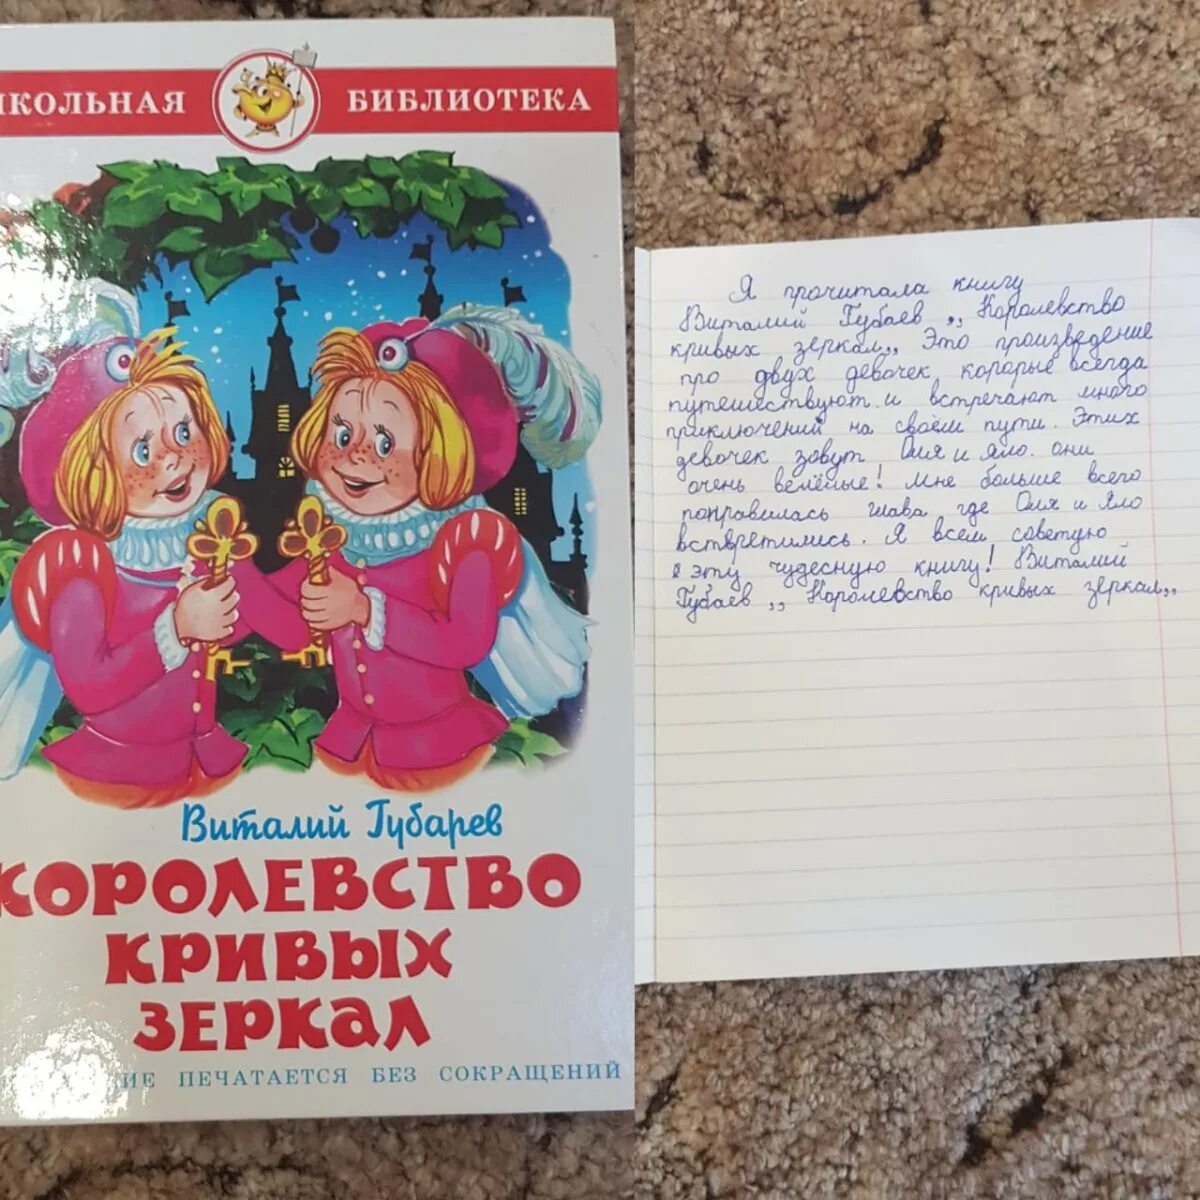 ШКОЛЬНАЯ БИБЛИОТЕКА
Виталий Губарев
КОРОЛЕВСТВО
КРИВЫХ
ЗЕРКАЛ
ИЕ ПЕЧАТАЕТСЯ БЕЗ СОКРАЩЕНИЙ
Я прочитала книгу
Виталий Губаев ,, Королевство
кривых зеркал,, Это произведение
про двух девочек корорые всегда
путешествуют и встречают много
приключений на своём пути. Этих
девочек зовут Оля и Яло. они
очень велёлые! Мне больше всего
понравилась глава где Оля и Яло
вствретились. Я всем советую
эту чудесную книгу! Виталий
Губаев ,, Королевство кривых зеркал,,